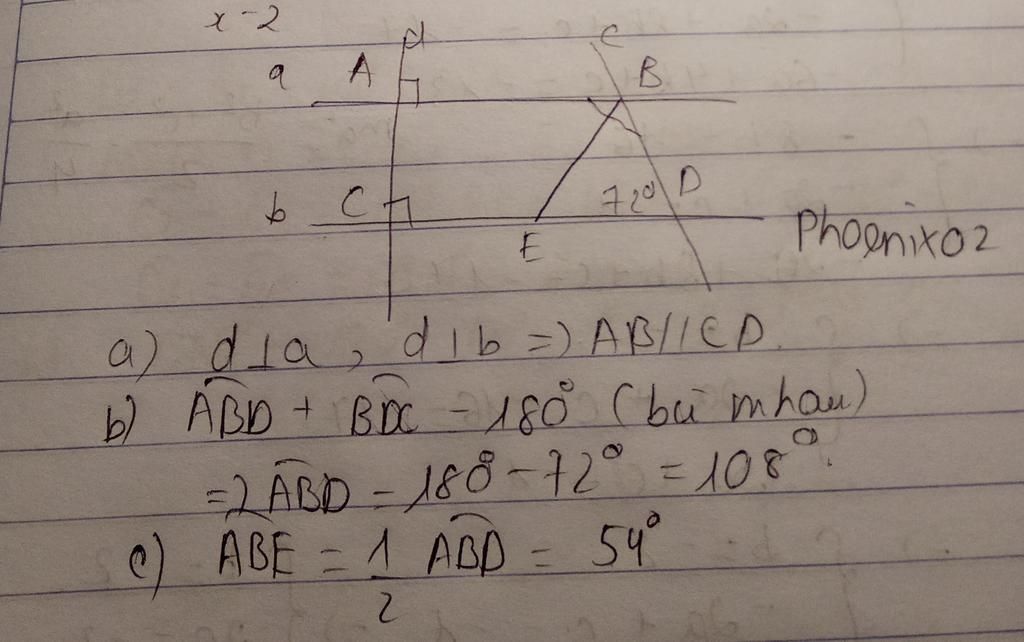 x-2
d
c
a A B
b C 72° D
E
Phoenix02
a) d⊥a, d⊥b => AB//CD.
b) ABD + BDC = 180° (bù nhau)
=> ABD = 180° - 72° = 108°.
c) ABE = 1/2 ABD = 54°